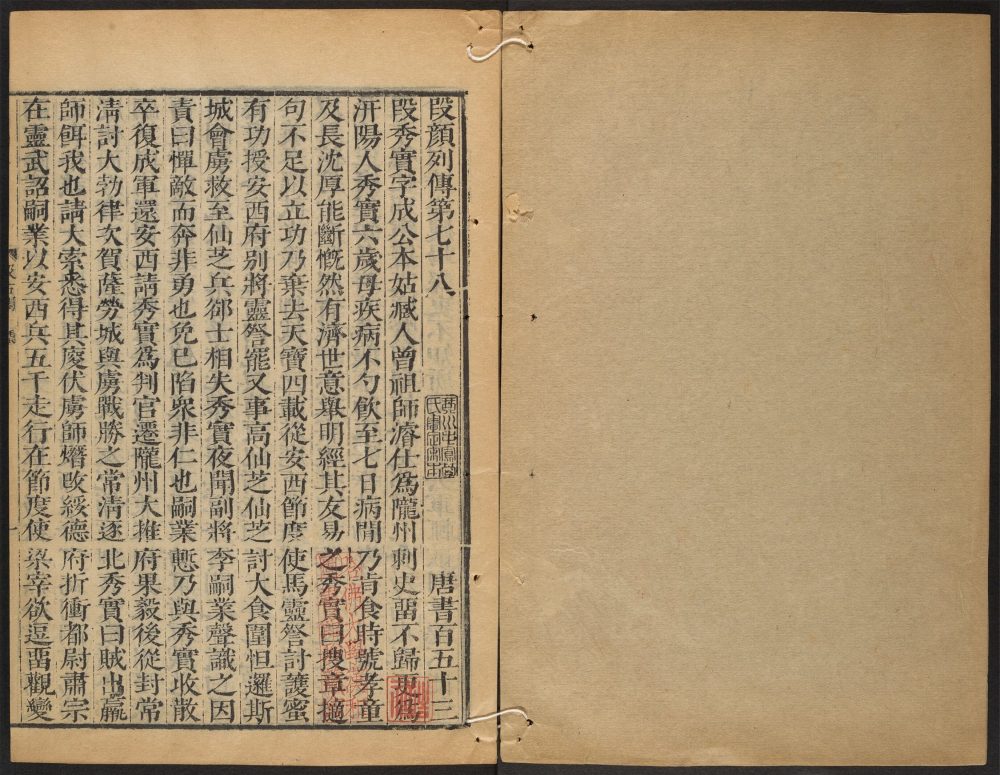 段顏列傳第七十八 唐書百五十三
段秀實字成公本姑臧人曾祖師濬仕為隴州刺史畱不歸更為
汧陽人秀實六歲母疾病不勺飲至七日病閒乃肯食時號孝童
及長沈厚能斷慨然有濟世意舉明經其友易之秀實曰搜章擿
句不足以立功乃棄去天寶四載從安西節度使馬靈詧討護蜜
有功授安西府別將靈詧罷又事高仙芝仙芝討大食圍怛邏斯
城會虜救至仙芝兵卻士相失秀實夜聞副將李嗣業聲識之因
責曰憚敵而奔非勇也免已陷衆非仁也嗣業慙乃與秀實收散
卒復成軍還安西請秀實爲判官遷隴州大推府果毅後從封常
淸討大勃律次賀薩勞城與虜戰勝之常淸逐北秀實曰賊出羸
師餌我也請大索悉得其廋伏虜師熸改綏德府折衝都尉肅宗
在靈武詔嗣業以安西兵五千走行在節度使梁宰欲逗畱觀變